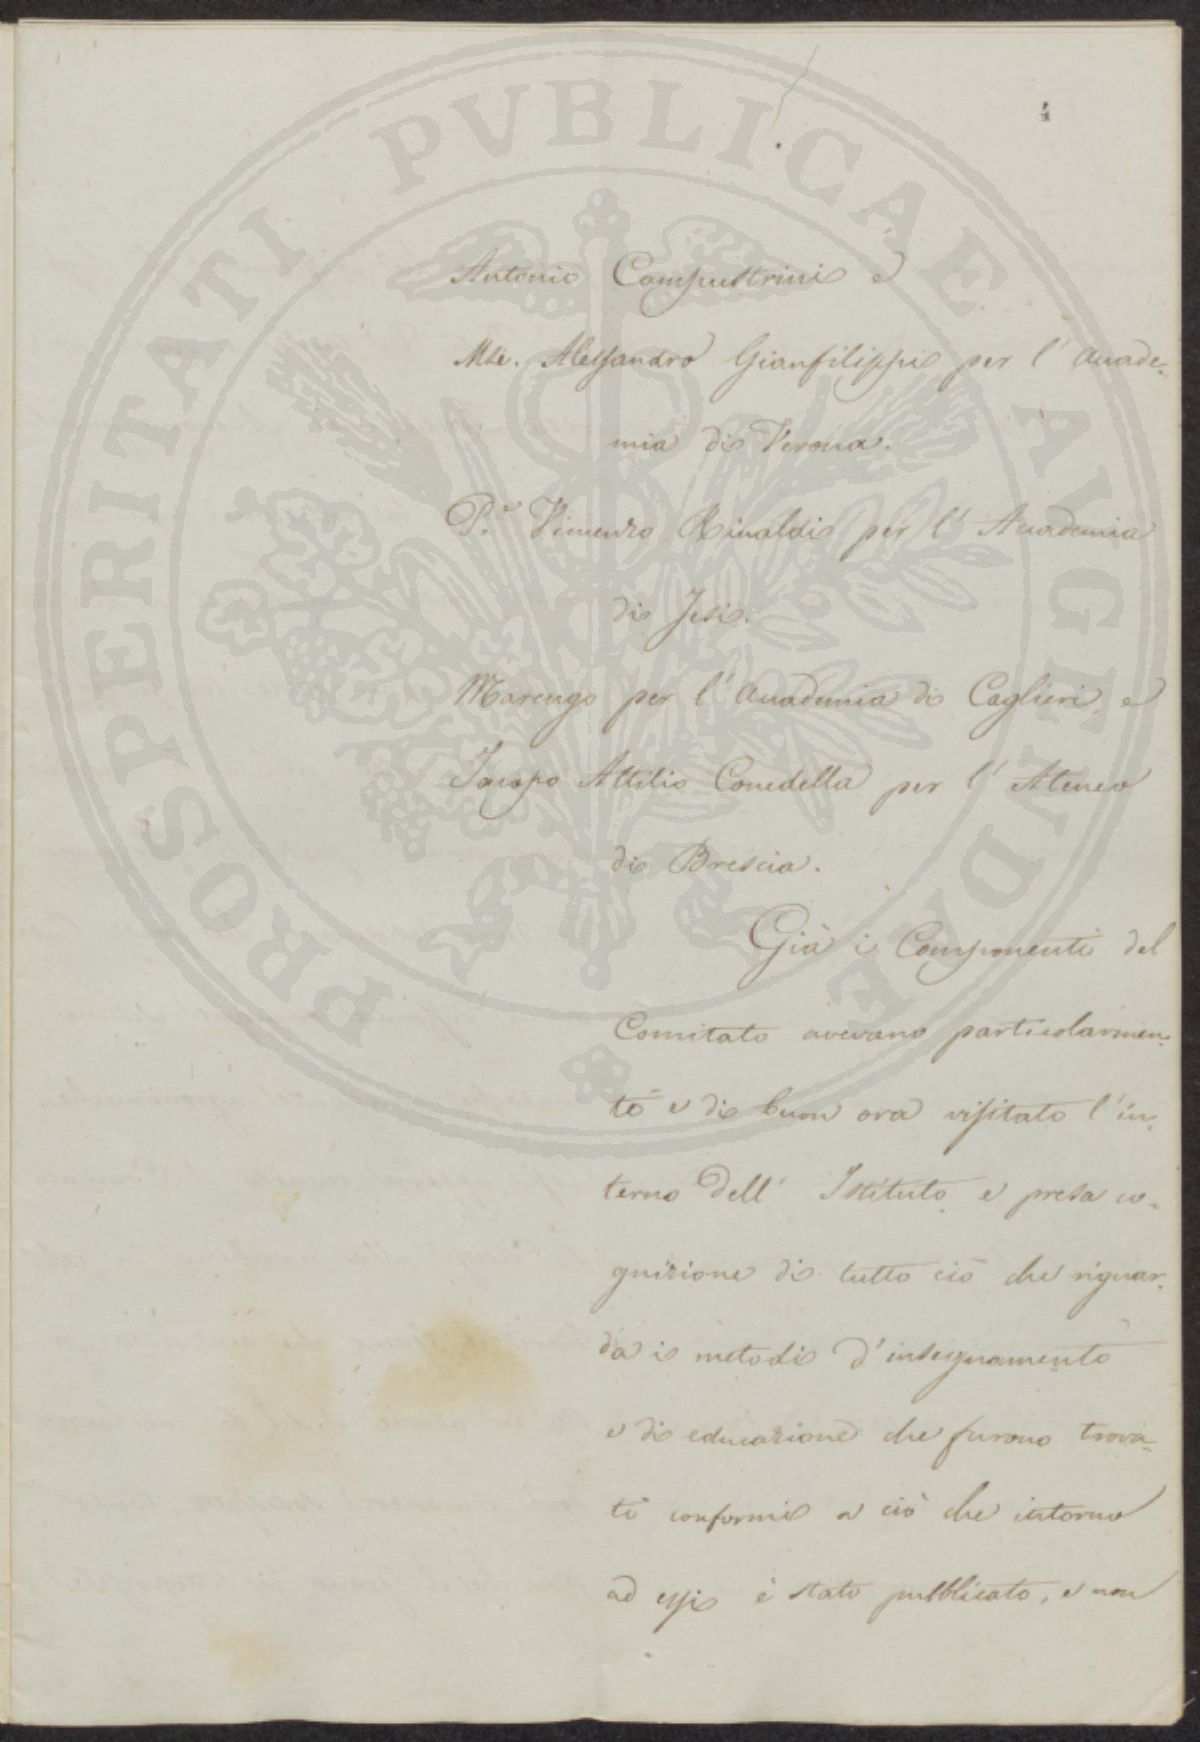 PROSPERITATI PVBLICAE AVGENDAE
4
Antonio Campostrini e
Mse. Alessandro Gianfilippi per l' Accade-
mia di Verona.
P.e Vincenzo Rinaldi per l' Accademia
di Jesi.
Marengo per l' Accademia di Caglieri, e
Jacopo Attilio Cenedella per l' Ateneo
di Brescia.
Già i Componenti del
Comitato avevano particolarmen-
te e di buon ora visitato l' in-
terno dell' Istituto e presa co-
gnizione di tutto ciò che riguar-
da i metodi d' insegnamento
e di educazione che furono trova-
ti conformi a ciò che intorno
ad essi è stato pubblicato, e non